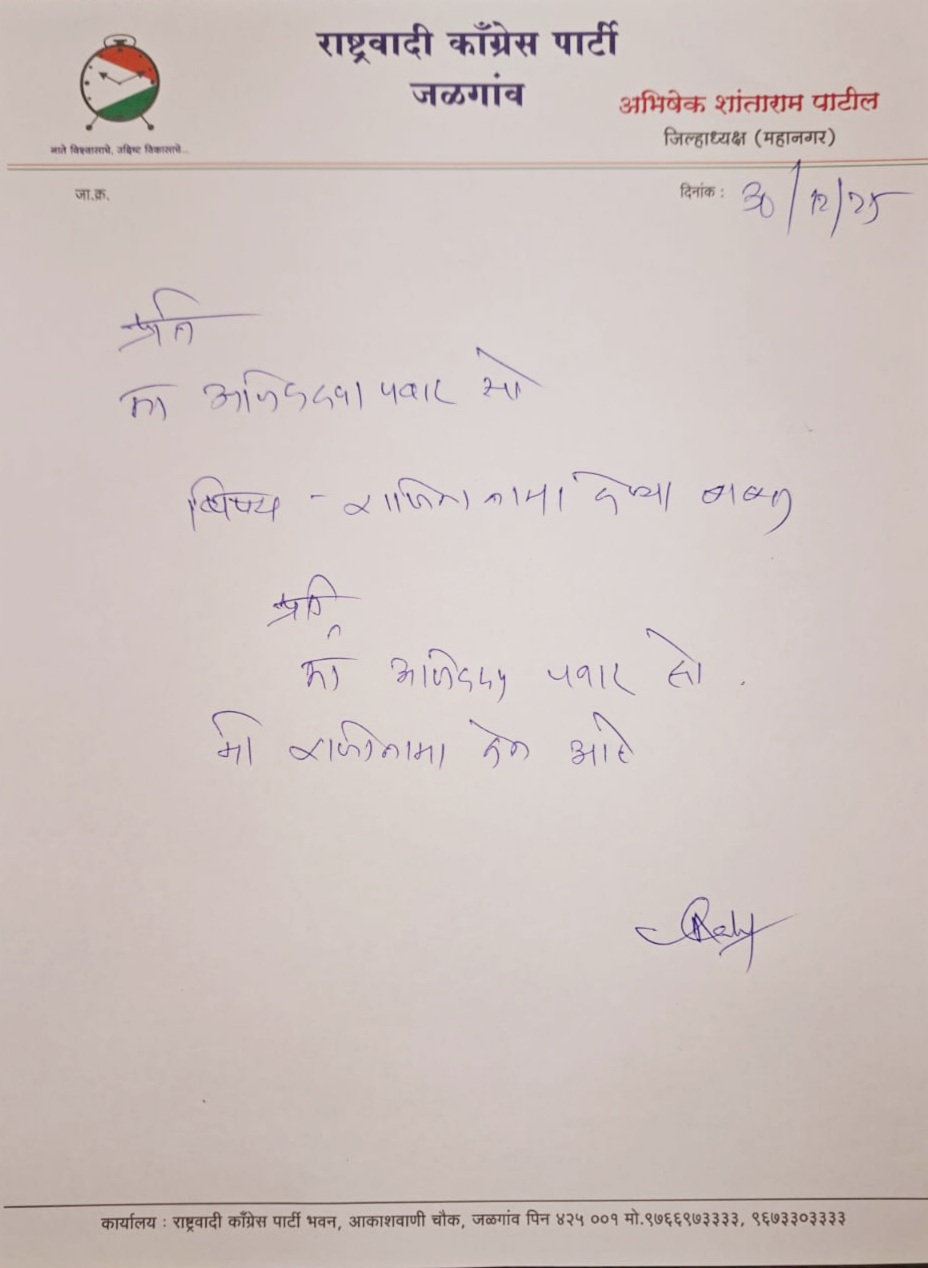 राष्ट्रवादी काँग्रेस पार्टी
जळगांव
अभिषेक शांताराम पाटील
जिल्हाध्यक्ष (महानगर)
नाते विश्वासाचे, उद्दिष्ट विकासाचे...
जा.क्र.
दिनांक : 30/12/25
प्रति
मा अजितदादा पवार सो
विषय - राजिनामा देण्या बाबत
प्रति,
मा अजितदादा पवार सो.
मी राजीनामा देत आहे
कार्यालय : राष्ट्रवादी काँग्रेस पार्टी भवन, आकाशवाणी चौक, जळगांव पिन ४२५ ००१ मो.९७६६९७३३३३, ९६७३३०३३३३